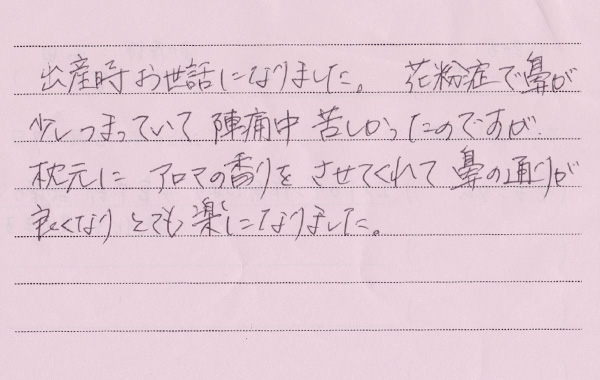 出産時お世話になりました。 花粉症で鼻が
少しつまっていて 陣痛中 苦しかったのですが、
枕元に アロマの香りを させてくれて 鼻の通りが
良くなり とても 楽になりました。